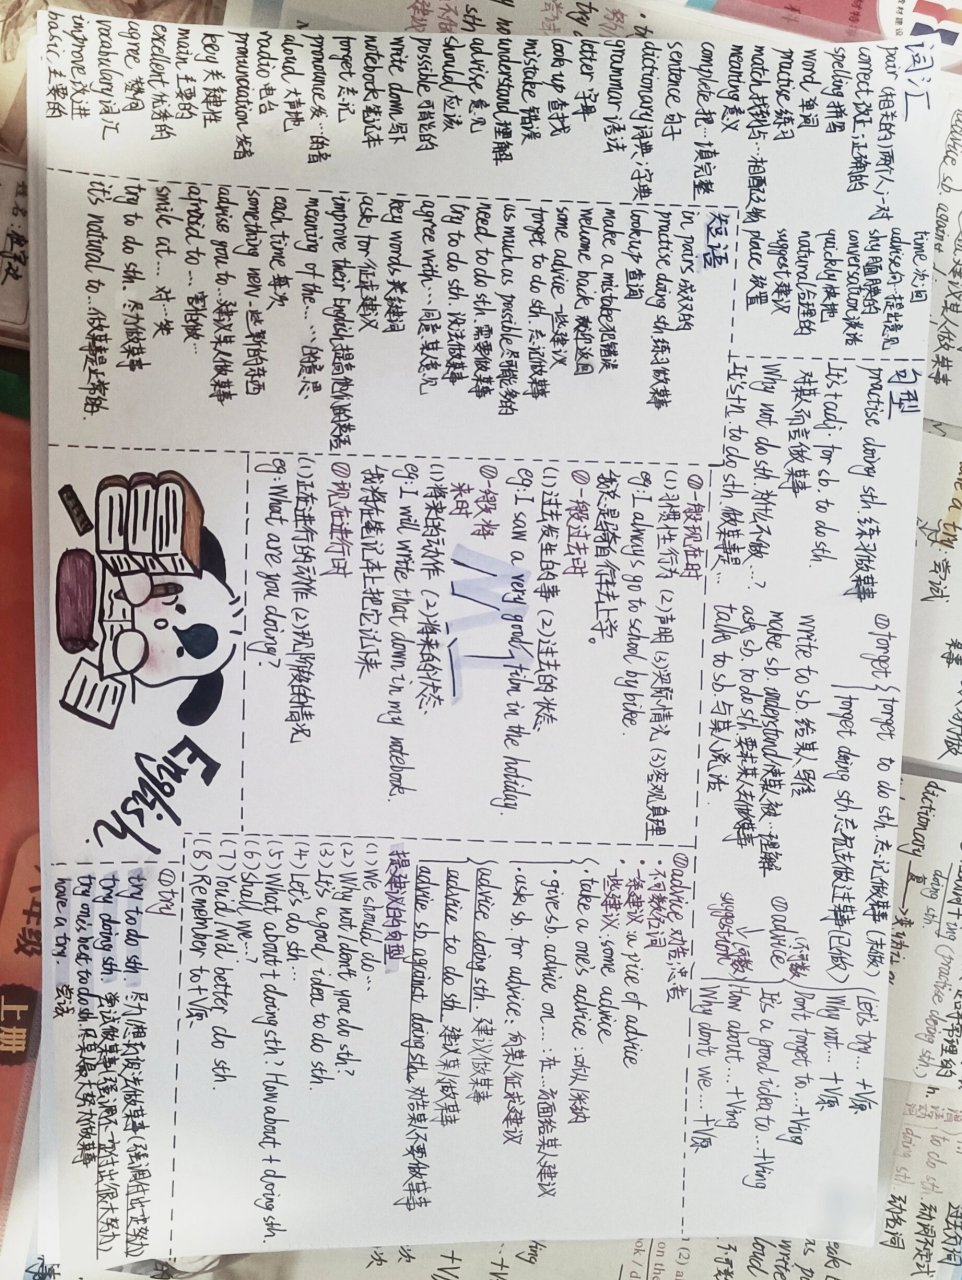 词汇
pair (相关的)两个人,一对
correct 改正;正确的
spelling 拼写
word 单词
practise 练习
match 找到与…相配之物
meaning 意义
complete 把…填完整
sentence 句子
dictionary 词典;字典
grammar 语法
letter 字母
look up 查找
mistake 错误
understand 理解
advise 意见
should 应该
possible 可能的
write down 写下
notebook 笔记本
forget 忘记
pronounce 发…的音
aloud 大声地
radio 电台
pronunciation 发音
key 关键性
main 主要的
excellent 优秀的
agree 赞同
vocabulary 词汇
improve 改进
basic 主要的
time 次;回
advise 向…提出意见
shy 腼腆的
conversation 谈话
quickly 快地
natural 合理的
suggest 建议
place 放置
短语
in pairs 成双的
practise doing sth 练习做某事
look up 查询
make a mistake 犯错误
welcome back 欢迎返回
some advice 一些建议
forget to do sth 忘记做某事
as much as possible 尽可能多的
need to do sth 需要做某事
try to do sth 设法做某事
agree with… 同意某人意见
key words 关键词
ask for 征求建议
improve their English 提高他们的英语
meaning of the… …的意思
each time 每次
something new 一些新的东西
advise you to… 建议某人做某事
afraid to… 害怕做…
smile at… 对…笑
try to do sth. 尽力做某事
it's natural to… 做某事是正常的.
句型
practise doing sth 练习做某事
It's + adj. for sb. to do sth.
对某人而言做某事
Why not do sth. 对什么不做…?
It's th. to do sth 做某事是…
①forget
forget to do sth 忘记做某事(未做)
forget doing sth 忘记去做过某事(已做)
write to sb 给某人写信
make sb. understand 使某人被…理解
ask sb. to do sth 要求某人去做某事
talk to sb 与某人说话.
①advice
不可数
suggestion
可数
Let's try… +V原
Why not… +V原
Don't forget to… +Ving
It's a good idea to… +Ving
How about… +Ving
Why don't we… +V原
①一般现在时
(1)习惯性行为 (2)声明 (3)实际情况 (3)客观真理
eg: I always go to school by bike.
我总是骑自行车去上学。
①一般过去时
(1)过去发生的事 (2)过去的状态.
eg: I saw a very good film in the holiday.
①一般将来时
(1)将来的动作 (2)将来的状态.
eg: I will write that down in my notebook.
我将在笔记本上把它记下来
①现在进行时
(1)正在进行的动作 (2)现阶段的情况
eg: What are you doing?
M1
English
①advice 劝告;忠告
·不可数名词
一条建议:a piece of advice
一些建议:some advice
·take a one's advice:听从/采纳
·give sb. advice on…:在…方面给某人建议
·ask sb. for advice:向某人征求建议
advice doing sth 建议做某事
advice to do sth 建议某人做某事
advice sb against doing sth 劝告某人不要做某事
提建议的句型
(1) We should do…
(2) Why not / don't you do sth?
(3) It's a good idea to do sth.
(4) Let's do sth…
(5) What about + doing sth? / How about + doing sth.
(6) Shall we…?
(7) You'd / We'd better do sth
(8) Remember to +V原
①try
try to do sth 尽力/想方设法去做某事(强调付出一定努力)
try doing sth 尝试做某事(强调不一定付出很大努力)
try one's best to do sth 尽某人最大努力做某事
have a try 尝试